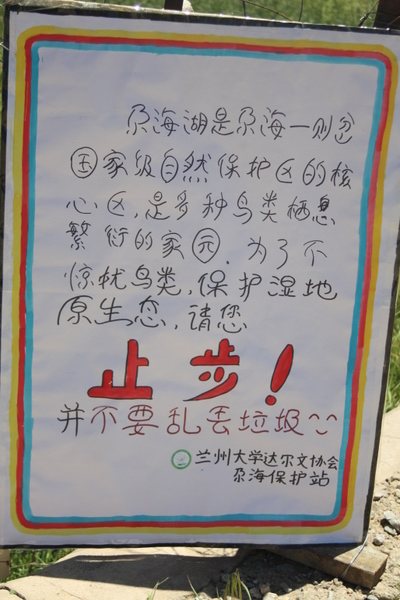 尕海湖是尕海一则岔
国家级自然保护区的核
心区,是多种鸟类栖息
繁衍的家园.为了不
惊扰鸟类,保护湿地
原生态,请您
止步!
并不要乱丢垃圾~~
兰州大学达尔文协会
尕海保护站